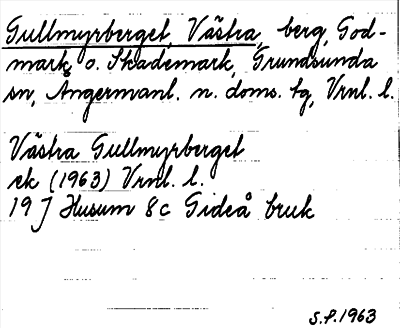 Gullmyrberget, Västra, berg, God-
mark o. Skademark, Grundsunda
sn, Ångermanl. n. doms. tg, Vrnl. l.
Västra Gullmyrberget
ek (1963) Vrnl. l.
19 J Husum 8c Gideå bruk
S.P. 1963